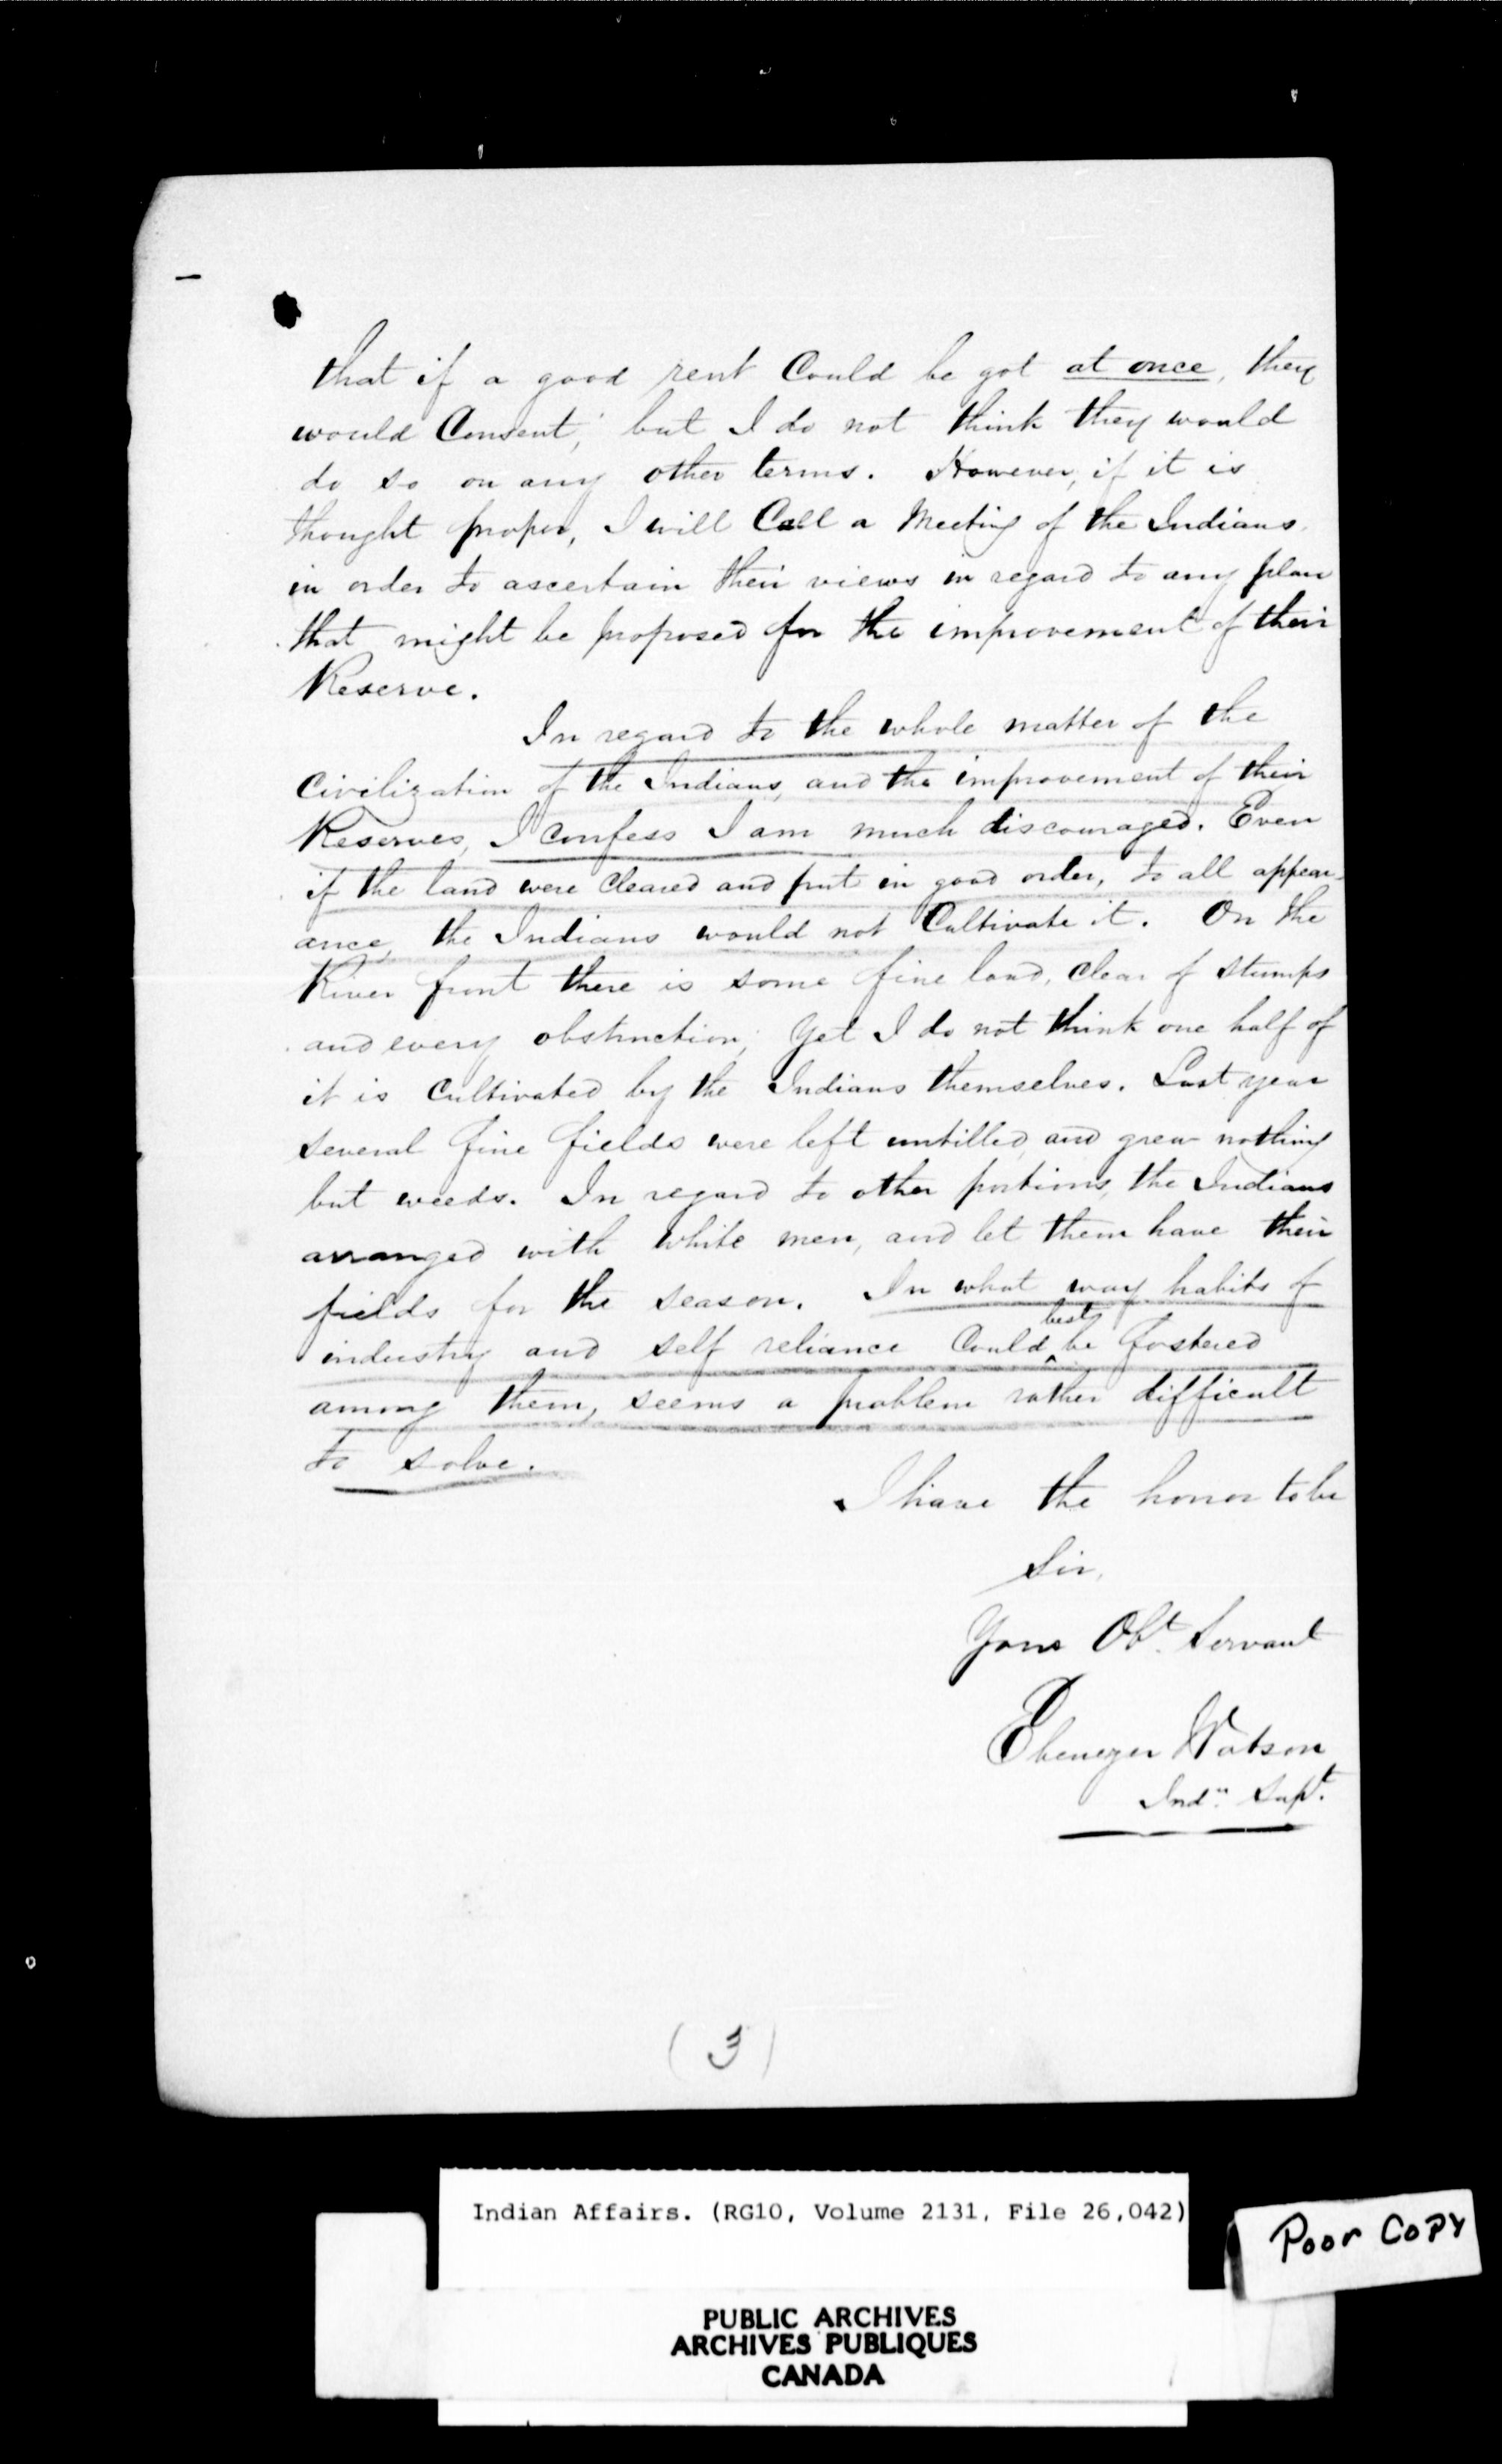 that if a good rent Could be got at once, they
would Consent; but I do not think they would
do so on any other terms. However, if it is
thought proper, I will Call a Meeting of the Indians
in order to ascertain their views in regard to any plan
that might be proposed for the improvement of their
Reserve.
In regard to the whole matter of the
Civilization of the Indians, and the improvement of their
Reserves, I confess I am much discouraged. Even
if the land were Cleared and put in good order, to all appear-
ance, the Indians would not Cultivate it. On the
River front there is some fine land, Clear of stumps
and every obstruction; Yet I do not think one half of
it is Cultivated by the Indians themselves. Last year
several fine fields were left untilled, and grew nothing
but weeds. In regard to other portions, the Indians
arranged with White men, and let them have their
fields for the season. In what way habits of
industry and self reliance Could best be fostered
among them, seems a problem rather difficult
to solve.
I have the honor to be
Sir,
Your Obt. Servant
Ebenezer Watson
Indn. Supt.
(3)
Indian Affairs. (RG10, Volume 2131, File 26,042)
Poor Copy
PUBLIC ARCHIVES
ARCHIVES PUBLIQUES
CANADA